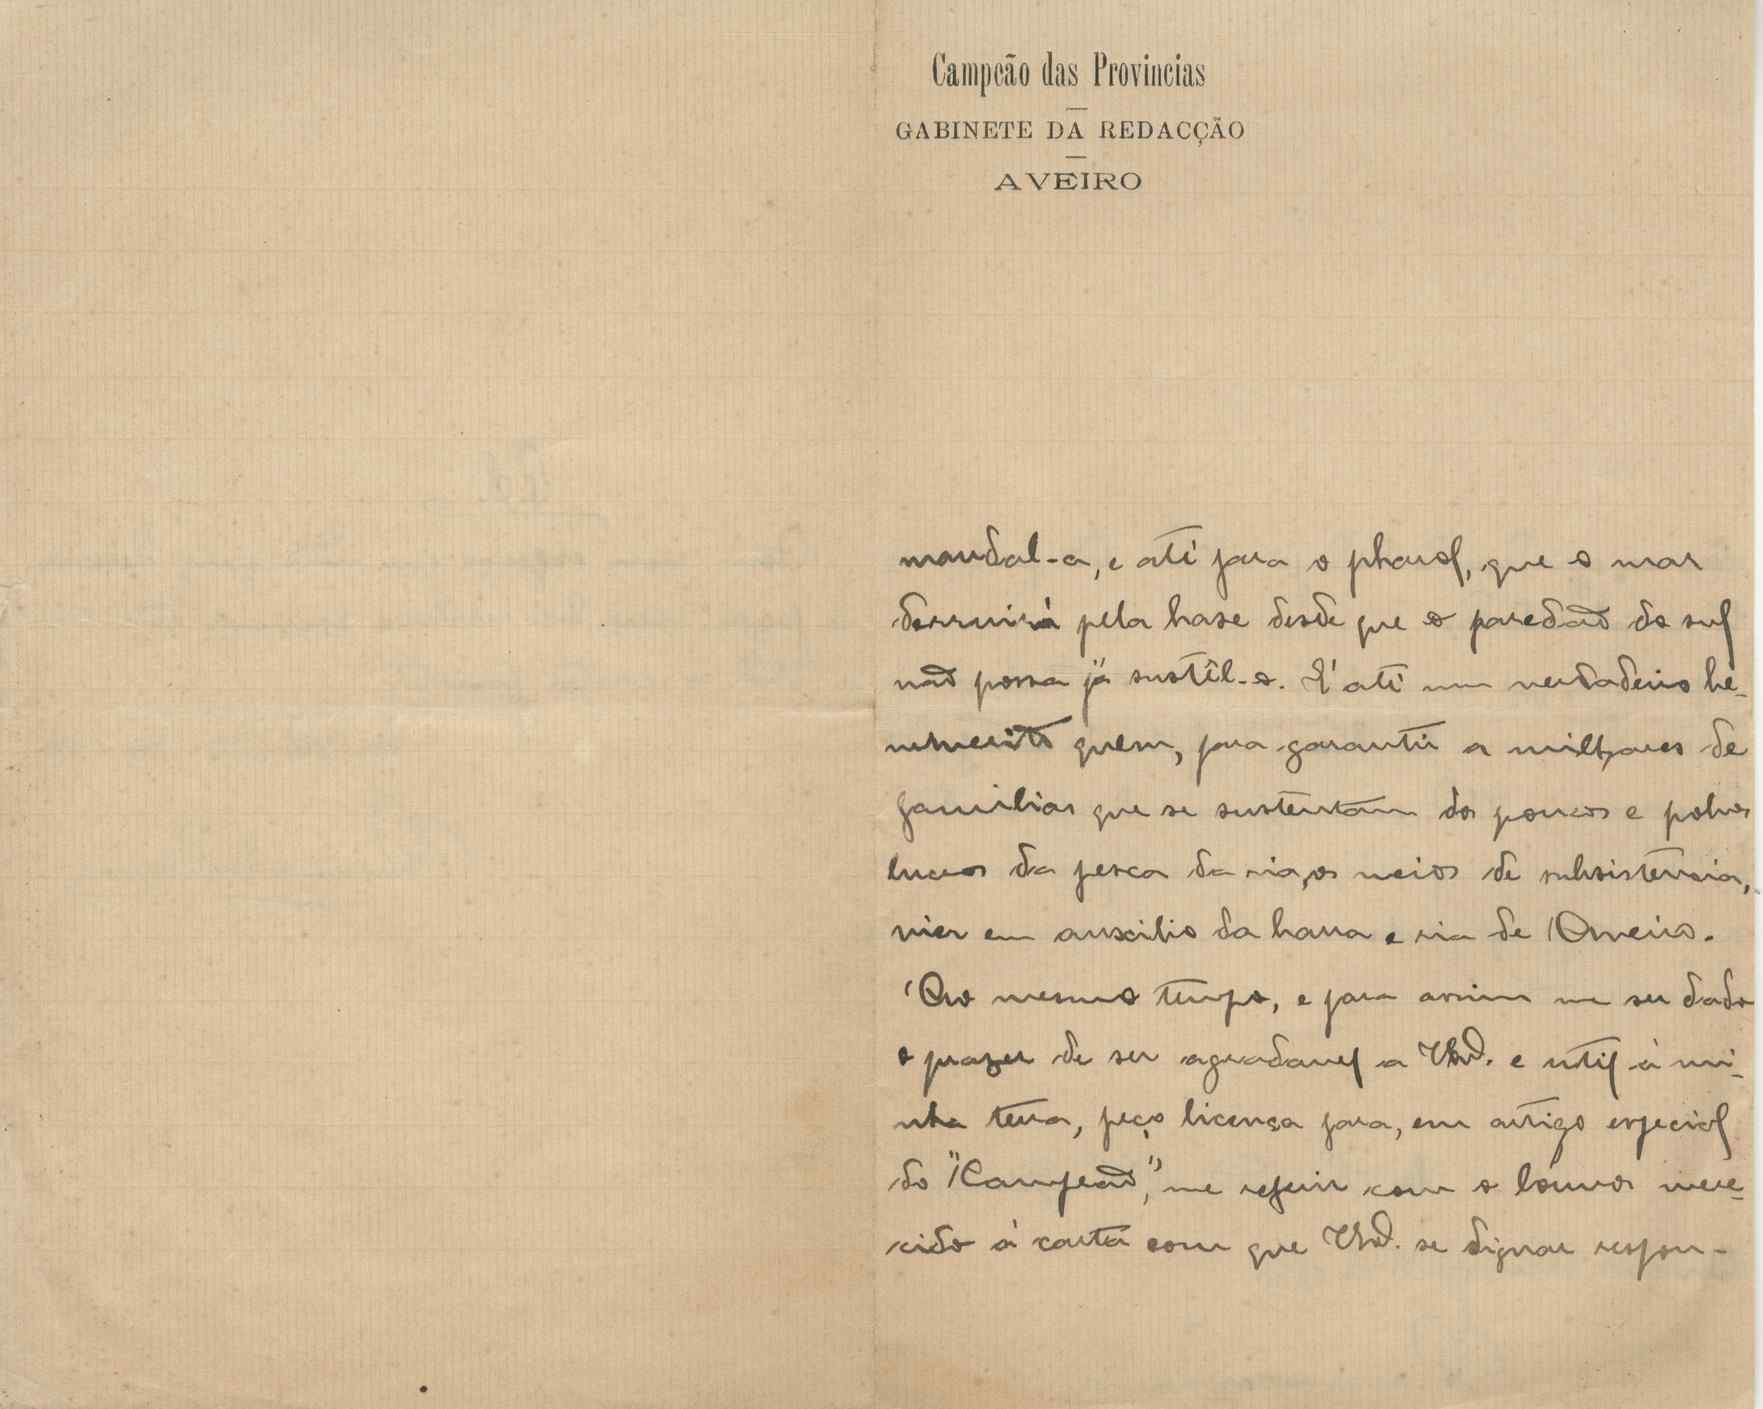 Campeão das Provincias
GABINETE DA REDACÇÃO
AVEIRO
mandal-a, e até para o pharol, que o mar
derruirá pela base desde que o paredão do sul
não possa já sustêl-o. É até um verdadeiro be-
nemerito quem, para garantir a milhares de
familias que se sustentam dos poucos e pobres
lucros da pesca da ria, os meios de subsistencia,
vier em auxilio da barra e ria de Aveiro.
Ao mesmo tempo, e para assim me ser dado
o prazer de ser agradavel a e util á mi-
nha terra, peço licença para, em artigo especial
do "Campeão", me referir com o louvor mere-
cido á carta com que se dignar respon-